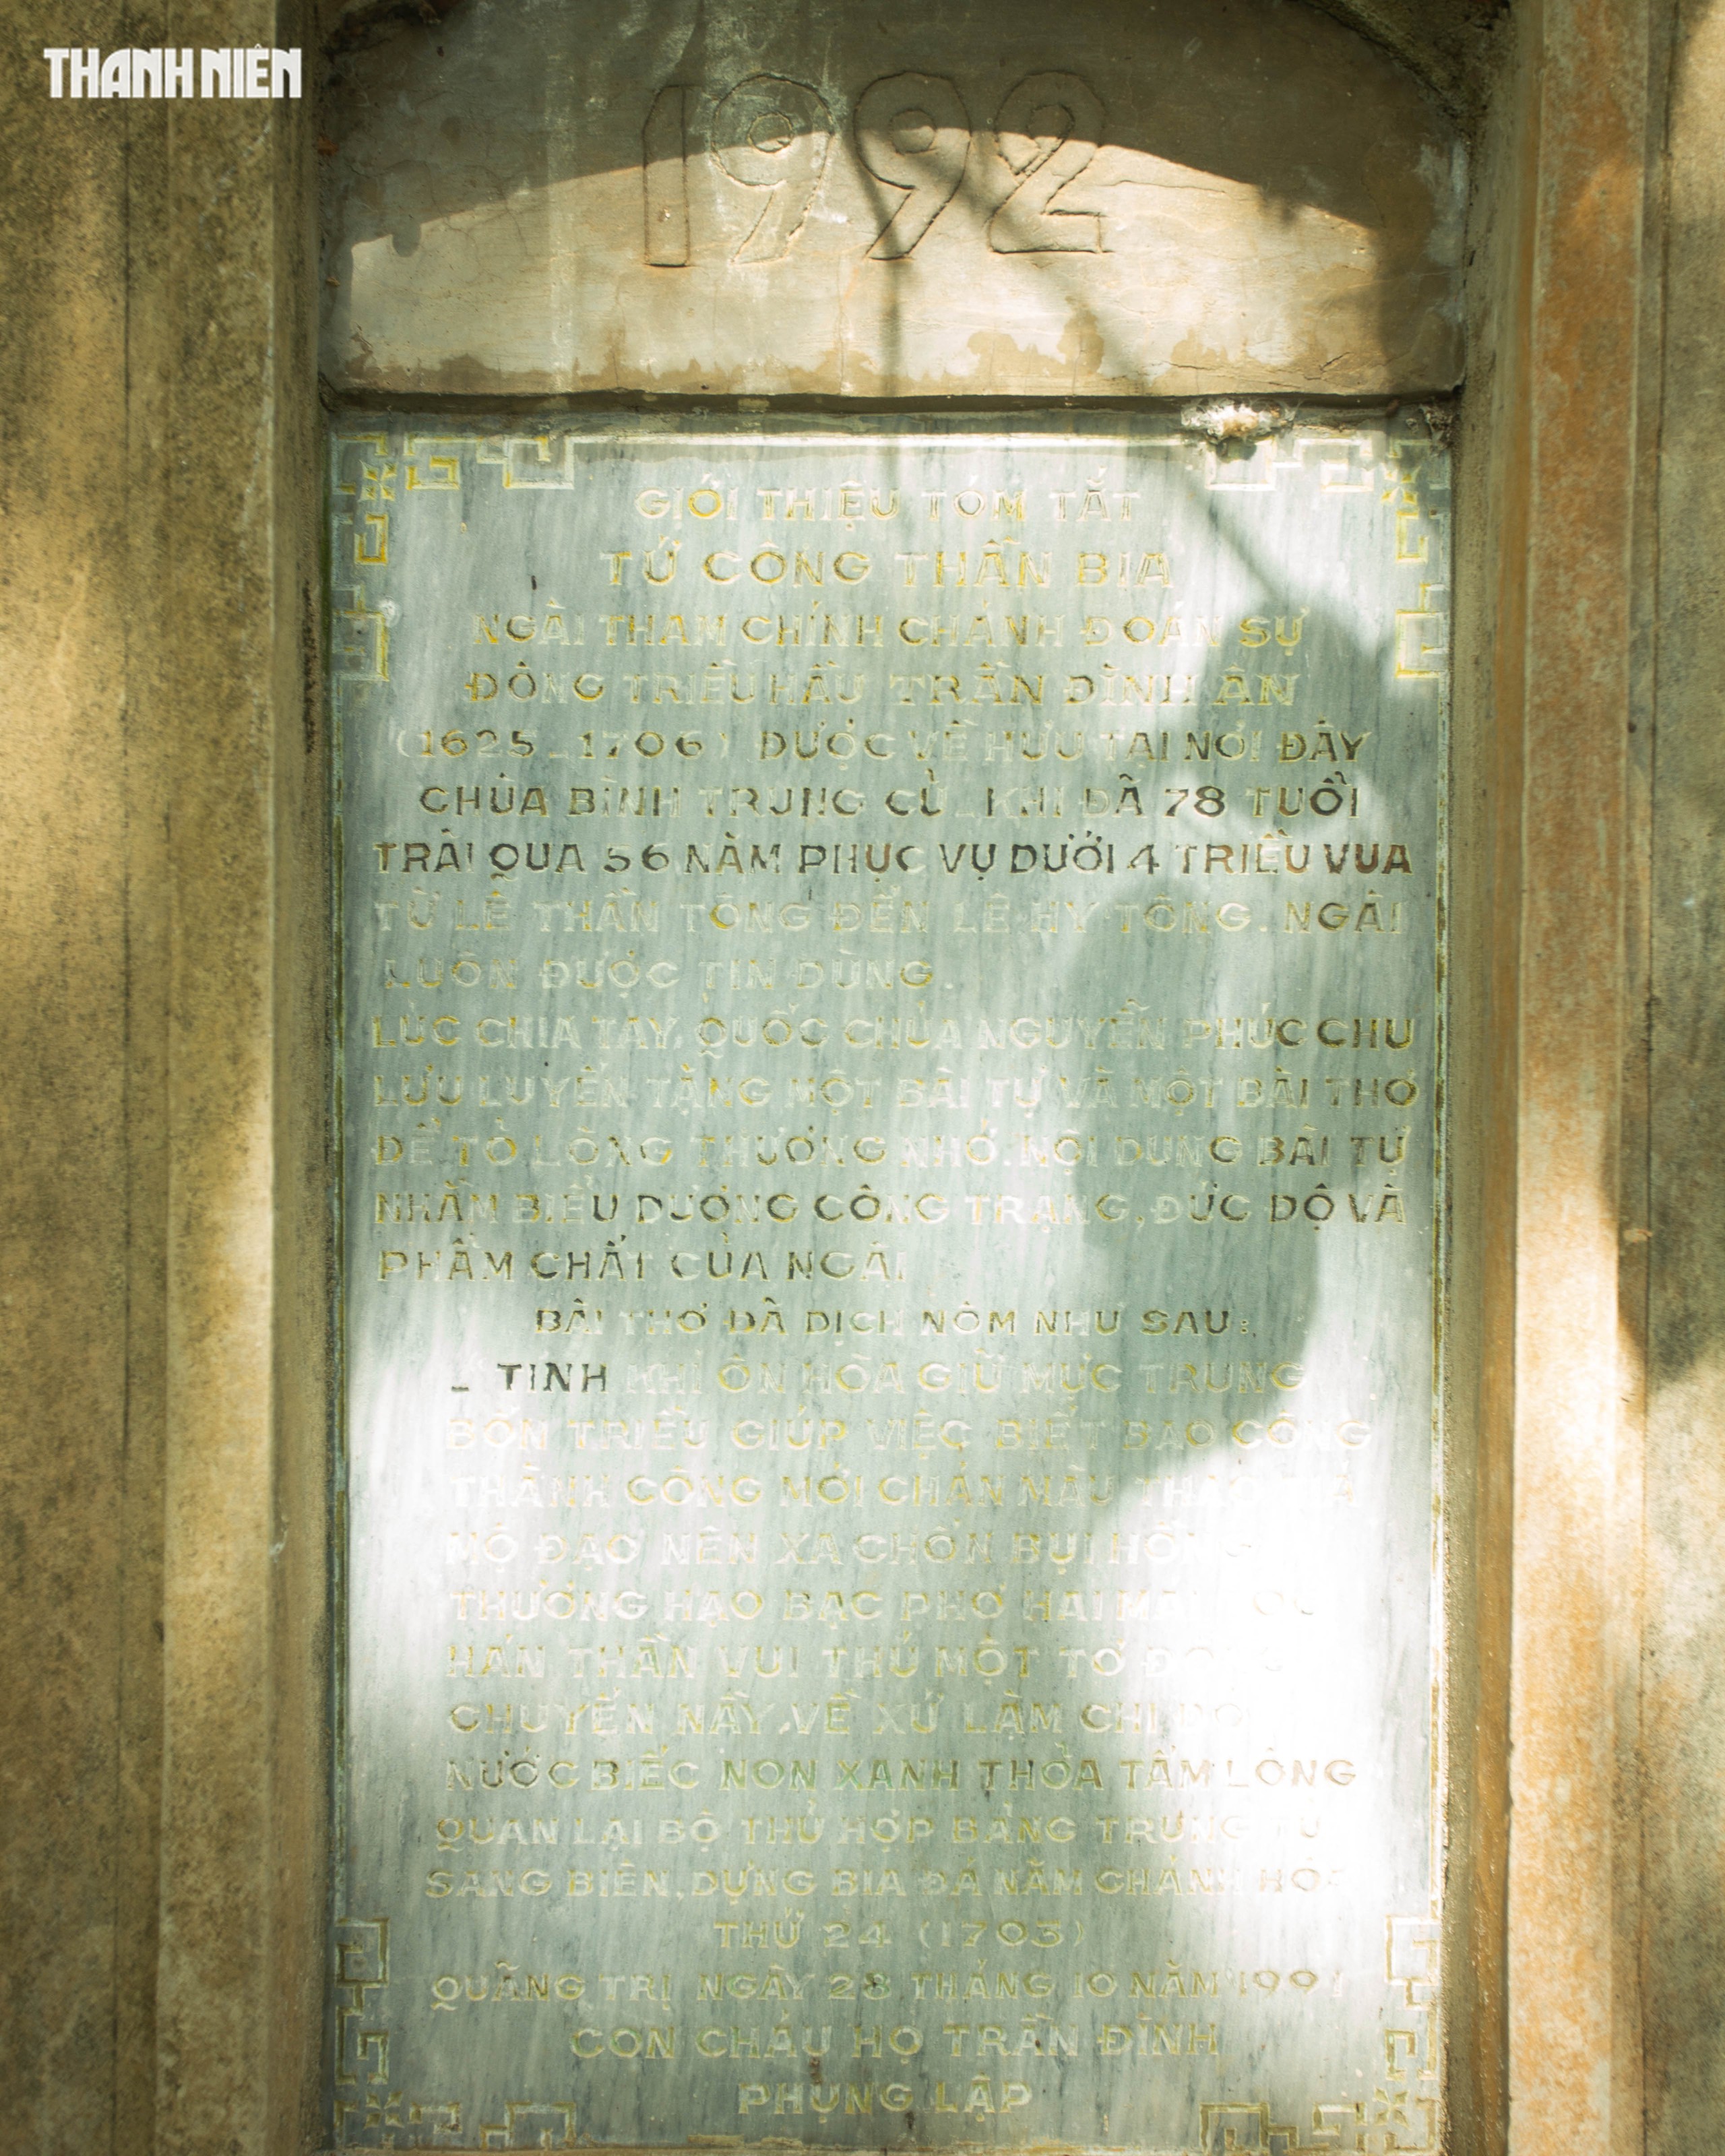 THANH NIÊN
1992
GIỚI THIỆU TÓM TẮT
TỨ CÔNG THẦN BIA
NGÀI THAM CHÍNH CHÁNH ĐOÁN SỰ
ĐÔNG TRIỀU HẦU TRẦN ĐÌNH ÂN
(1625_1706) ĐƯỢC VỀ HƯU TẠI NƠI ĐÂY
CHÙA BÌNH TRUNG CŨ_KHI ĐÃ 78 TUỔI
TRẢI QUA 56 NĂM PHỤC VỤ DƯỚI 4 TRIỀU VUA
TỪ LÊ THẦN TÔNG ĐẾN LÊ HY TÔNG. NGÀI
LUÔN ĐƯỢC TIN DÙNG.
LÚC CHIA TAY, QUỐC CHÚA NGUYỄN PHÚC CHU
LƯU LUYẾN TẶNG MỘT BÀI TỰ VÀ MỘT BÀI THƠ
ĐỂ TỎ LÒNG THƯƠNG NHỚ. NỘI DUNG BÀI TỰ
NHẰM BIỂU DƯƠNG CÔNG TRẠNG, ĐỨC ĐỘ VÀ
PHẨM CHẤT CỦA NGÀI
BÀI THƠ ĐÃ DỊCH NÔM NHƯ SAU:
_ TINH KHÍ ÔN HÒA GIỮ MỰC TRUNG
BỐN TRIỀU GIÚP VIỆC BIẾT BAO CÔNG
THÀNH CÔNG MỚI CHÁN MÀU THAO
MỘ ĐẠO NÊN XA CHỐN BỤI HỒNG
THƯỢNG HẠO BẠC PHƠ HAI MÁI
HÁN THẦN VUI THÚ MỘT TỜ
CHUYẾN NẦY, VỀ XỨ LÀM CHI
NƯỚC BIẾC NON XANH THỎA TẤM LÒNG
QUAN LẠI BỘ THỦ HỢP BẢNG TRUNG
SANG BIÊN, DỰNG BIA ĐÁ NĂM CHÁNH HÒA
THỨ 24 (1703)
QUẢNG TRỊ NGÀY 28 THÁNG 10 NĂM 1991
CON CHÁU HỌ TRẦN ĐÌNH
PHỤNG LẬP